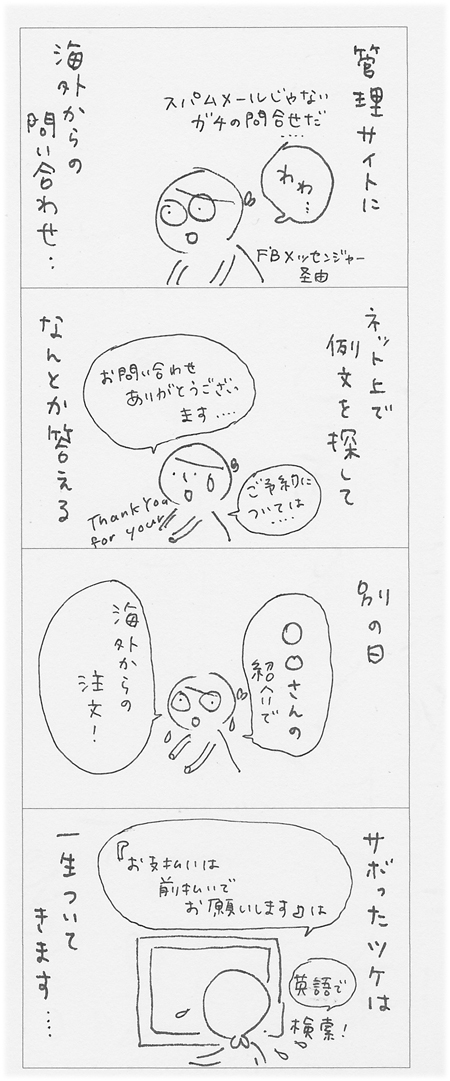 管理サイトに
スパムメールじゃない
ガチの問合せだ
....
わわ…
FBメッセンジャー
経由
海外からの
問い合わせ…
ネット上で
例文を探して
お問い合わせ
ありがとうござい
ます....
ご予約に
ついては
....
Thank you
for your
なんとか答える
別の日
○○さんの
紹介で
海外からの
注文!
サボったツケは
『お支払いは
前払いで
お願いします』は
英語で
検索!
一生ついて
きます....